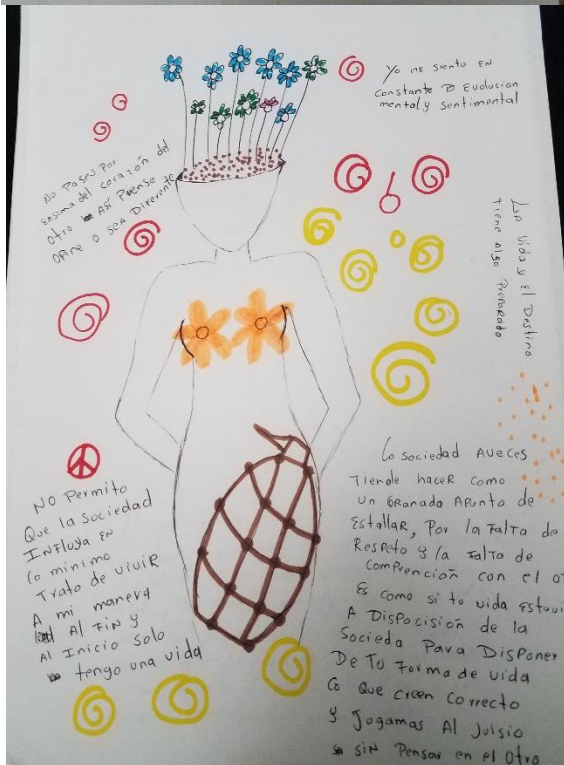 Yo me siento EN
Constante D Evolucion
mental y Sentimental
No Pases Por
Ensima del corazón del
Otro Así Piense
Opine o SEA Diferente
La Vida y El Destino
Tiene Algo Preparado
NO Permito
Que la Sociedad
INFluya EN
Lo minimo
Trato de vivir
A mi manera
Al Fin y
Al Inicio Solo
tengo una vida
La Sociedad Aveces
Tiende hacer como
un GRanada Apunto de
EstallaR, Por la Falta de
Respeto y la Falta de
Comprención con el
Es como si tu vida
A Dispocisión de la
Socieda Para Disponer
De Tu Forma de vida
Lo Que creen Correcto
y Jogamas Al Juisio
SIN Pensar en el Otro